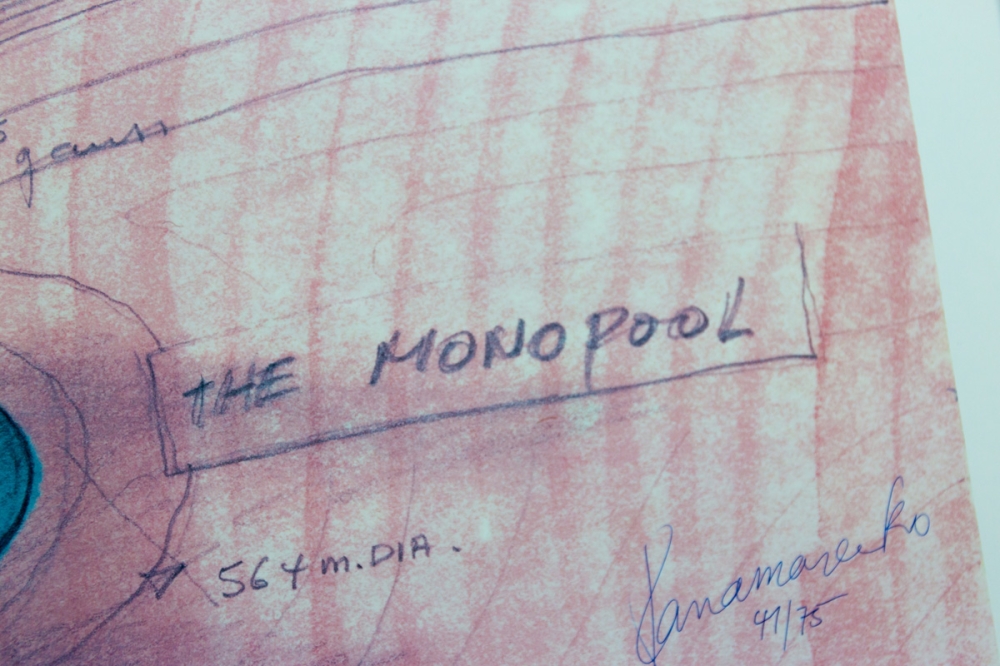 gauss
THE MONOPOOL
564 m. DIA.
Panamarenko
41/75